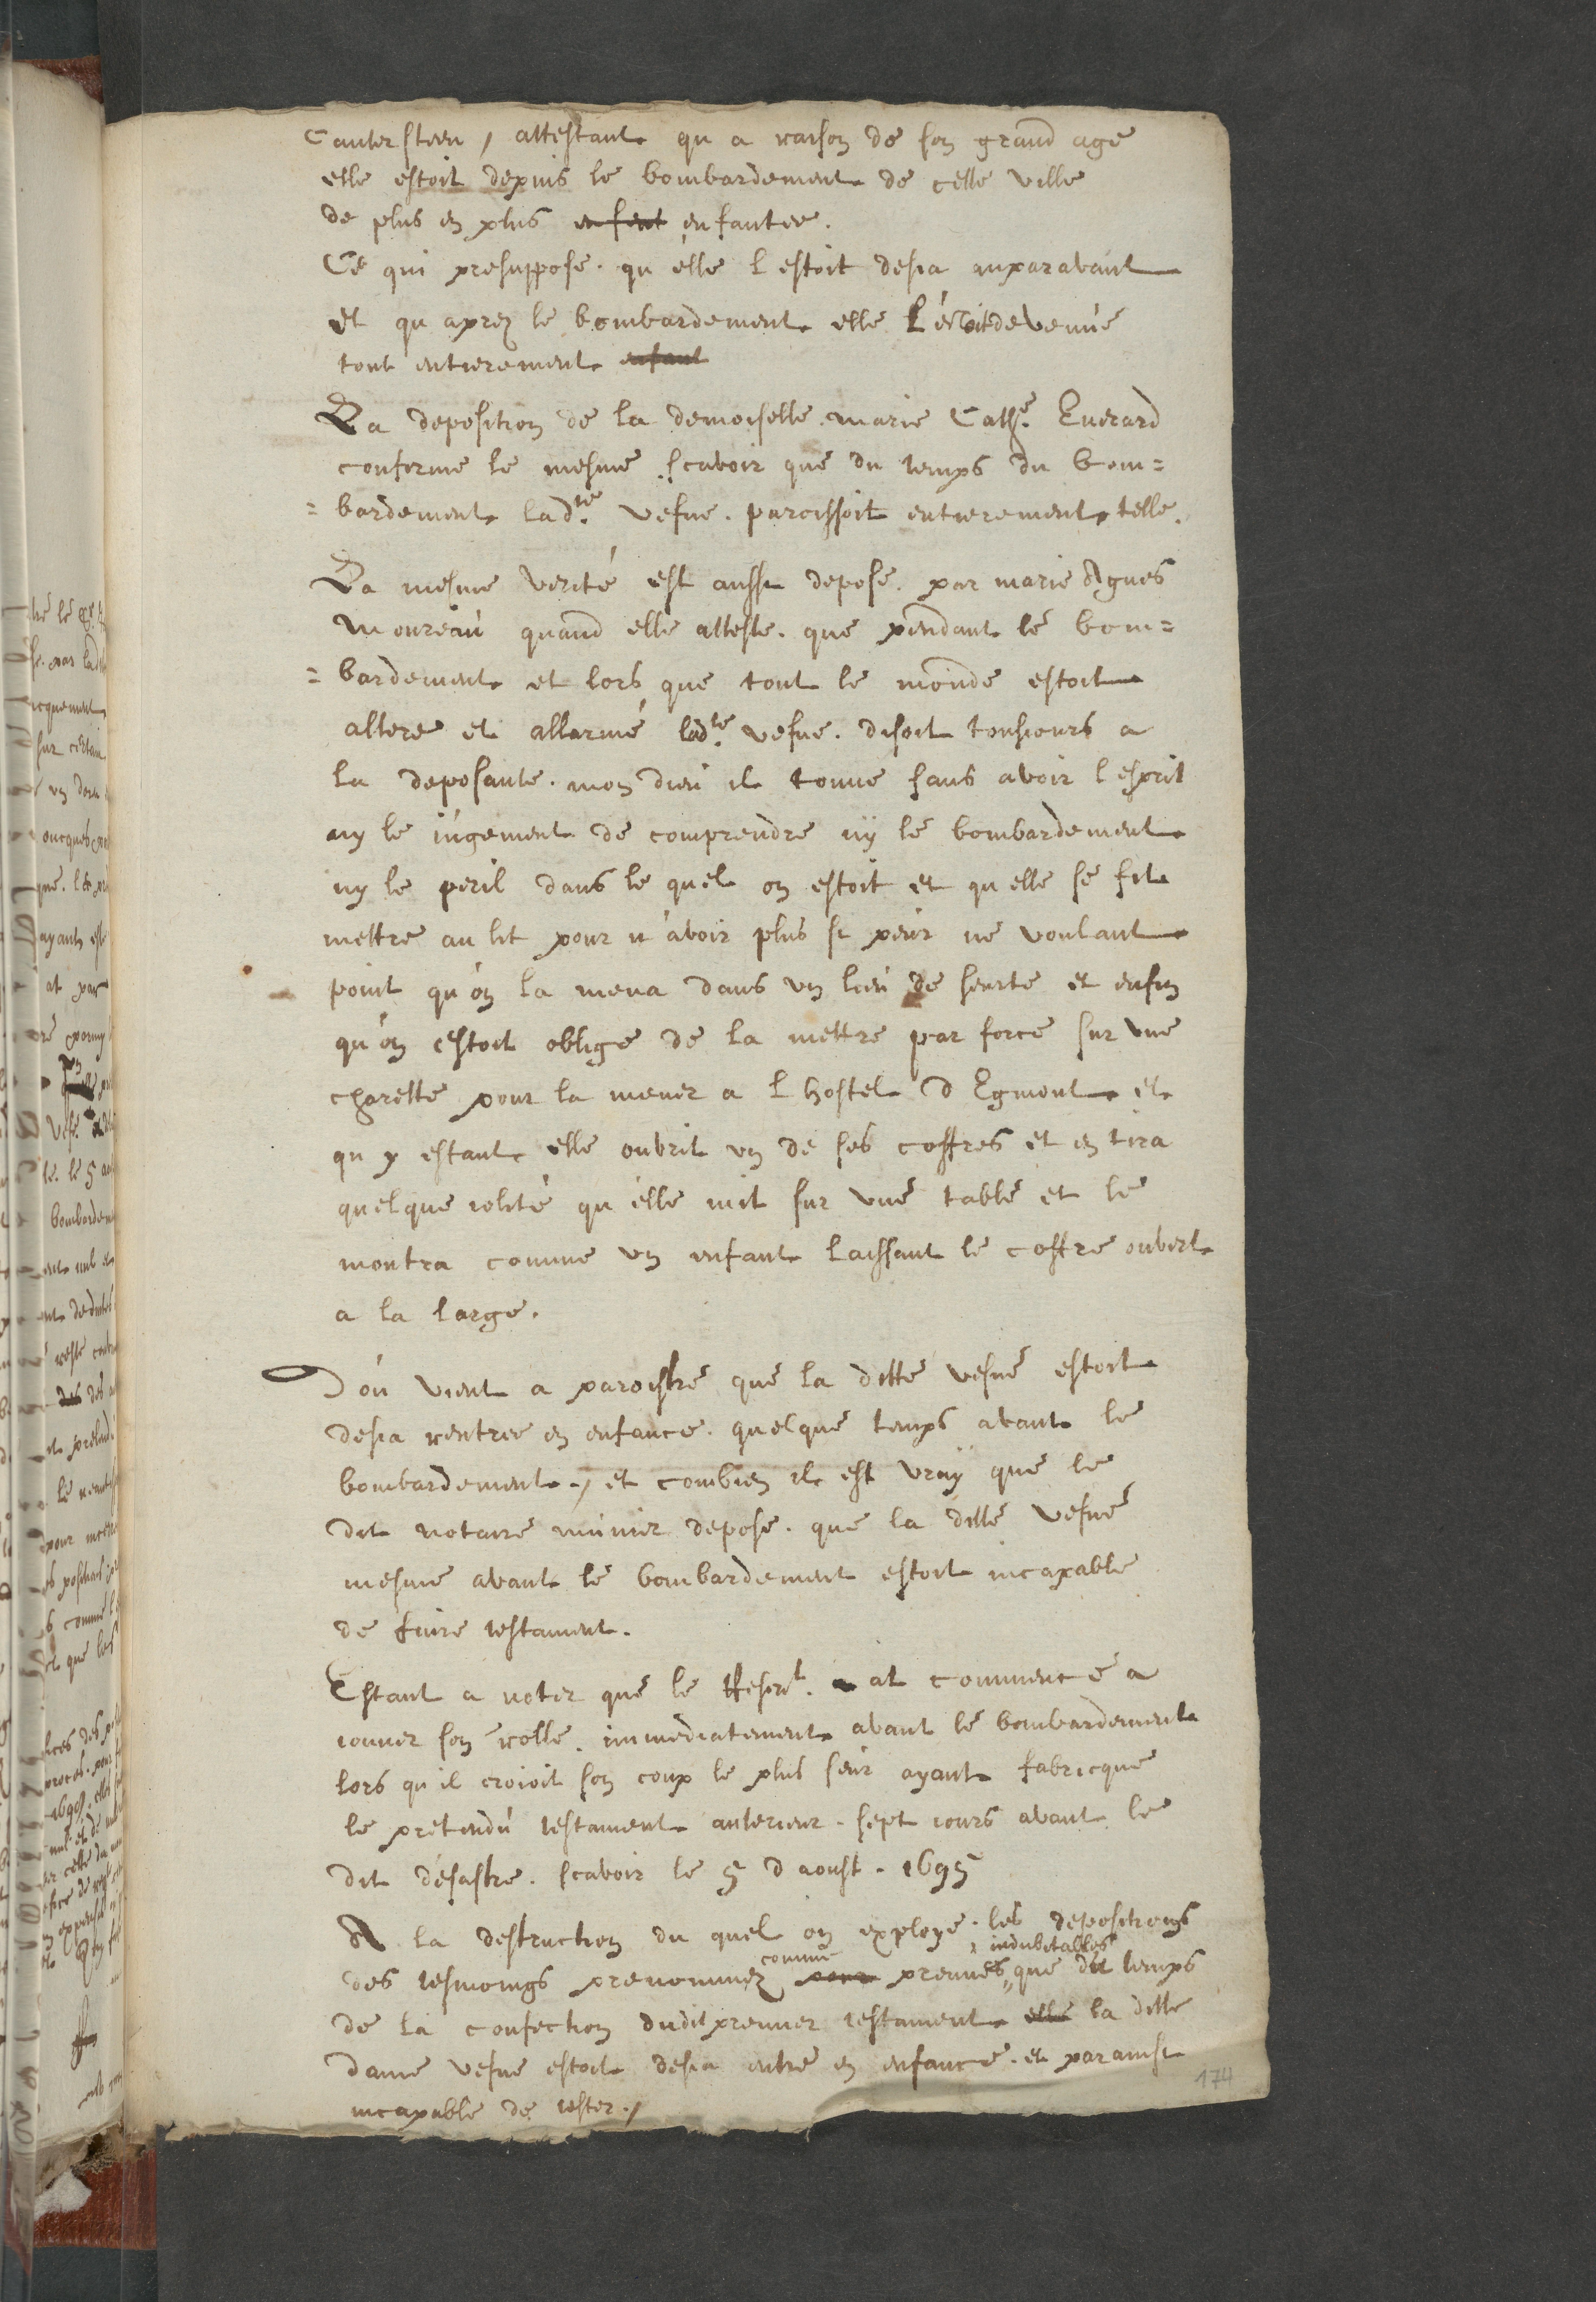 Cantersteen, attestant qu a raison de son grand age
elle estoit depuis le bombardement de cette ville
de plus en plus enfent enfantee.
Ce qui presuppose. qu'elle l estoit desia auparavant
et qu aprez le bombardement elle l'estoit devenue
tout entierement enfant
La deposition de la demoiselle. marie Cathe. Everard
conferme le mesme. scavoir que du temps du bom=
=bardement ladte. vefue. paroissoit entierement telle.
La mesme verité est aussi depose. par marie Agnes
Moureau quand elle atteste. que pendant le bom=
=bardement et lors que tout le monde estoit
altere et allarmé ladte. vefue. disoit tousiours a
la deposante. mon dieu il tonne sans avoir l esprit
ny le iugement de comprendre ny le bombardement
ny le peril dans le quel on estoit et qu elle se fit
mettre au lit pour n'avoir plus si peur ne voulant
point qu'on la mena dans un lieu de seurte et enfin
qu'on estoit oblige de la mettre par force sur une
charette pour la mener a l hostel d Egmont et
qu y estant elle oubrit un de ses coffres et en tira
quelque iolité qu'elle mit sur une table et le
montra comme un enfant laissant le coffre oubert
a la large.
D'ou vient a paroistre que la ditte vefue estoit
desia rentree en enfance. quelque temps avant le
bombardement, et combien il est vray que le
dit notaire munier depose. que la ditte vefue
mesme avant le bombardement estoit incapable
de faire testament.
Estant a noter que le Rescrt. at commence a
iouuer son rolle. immediatement avant le bombardement
lors qu il croioit son coup le plus seur ayant fabricque
le pretendu testament anterieur. sept iours avant le
dit desastre. scavoir le 5 d aoust. 1695
A la destruction du quel on exploye. les depositions
des tesmoings prenommez pour comme preuves indubitables que du temps
de la confection dudit premier testament elle la ditte
dame vefue estoit desia entre en enfance. et par ainsi
incapable de tester./
174